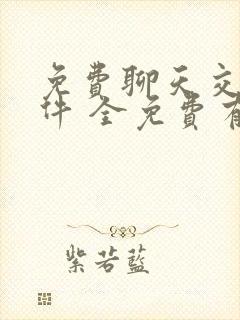 免費聊天交
件 全免費有
紫若藍